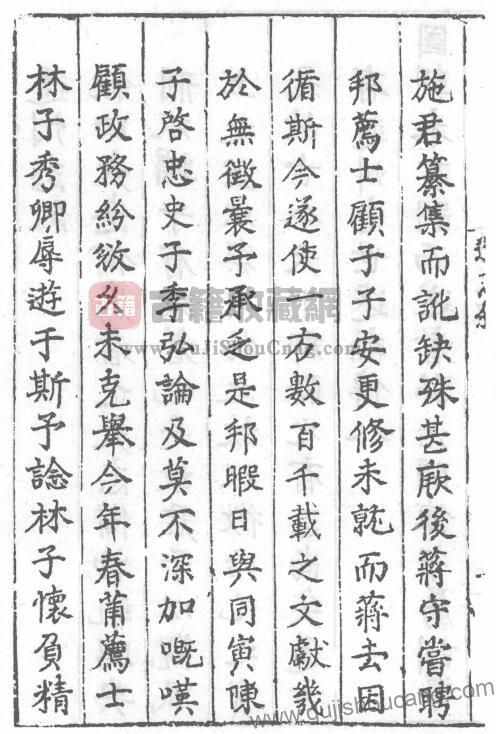 施君纂集而訛缺殊甚厥後蔣守嘗聘
邦薦士顧子子安更修未就而蔣去因
循斯今遂使一方數百千載之文獻幾
於無徵曩予承乏是邦暇日與同寅陳
子啓忠史子季弘論及莫不深加嘅嘆
顧政務紛敓久未克舉今年春莆薦士
林子秀卿辱遊于斯予諗林子懷負精
古籍
古籍收藏網
www.GuJiShouCang.com
www.gujishoucang.com